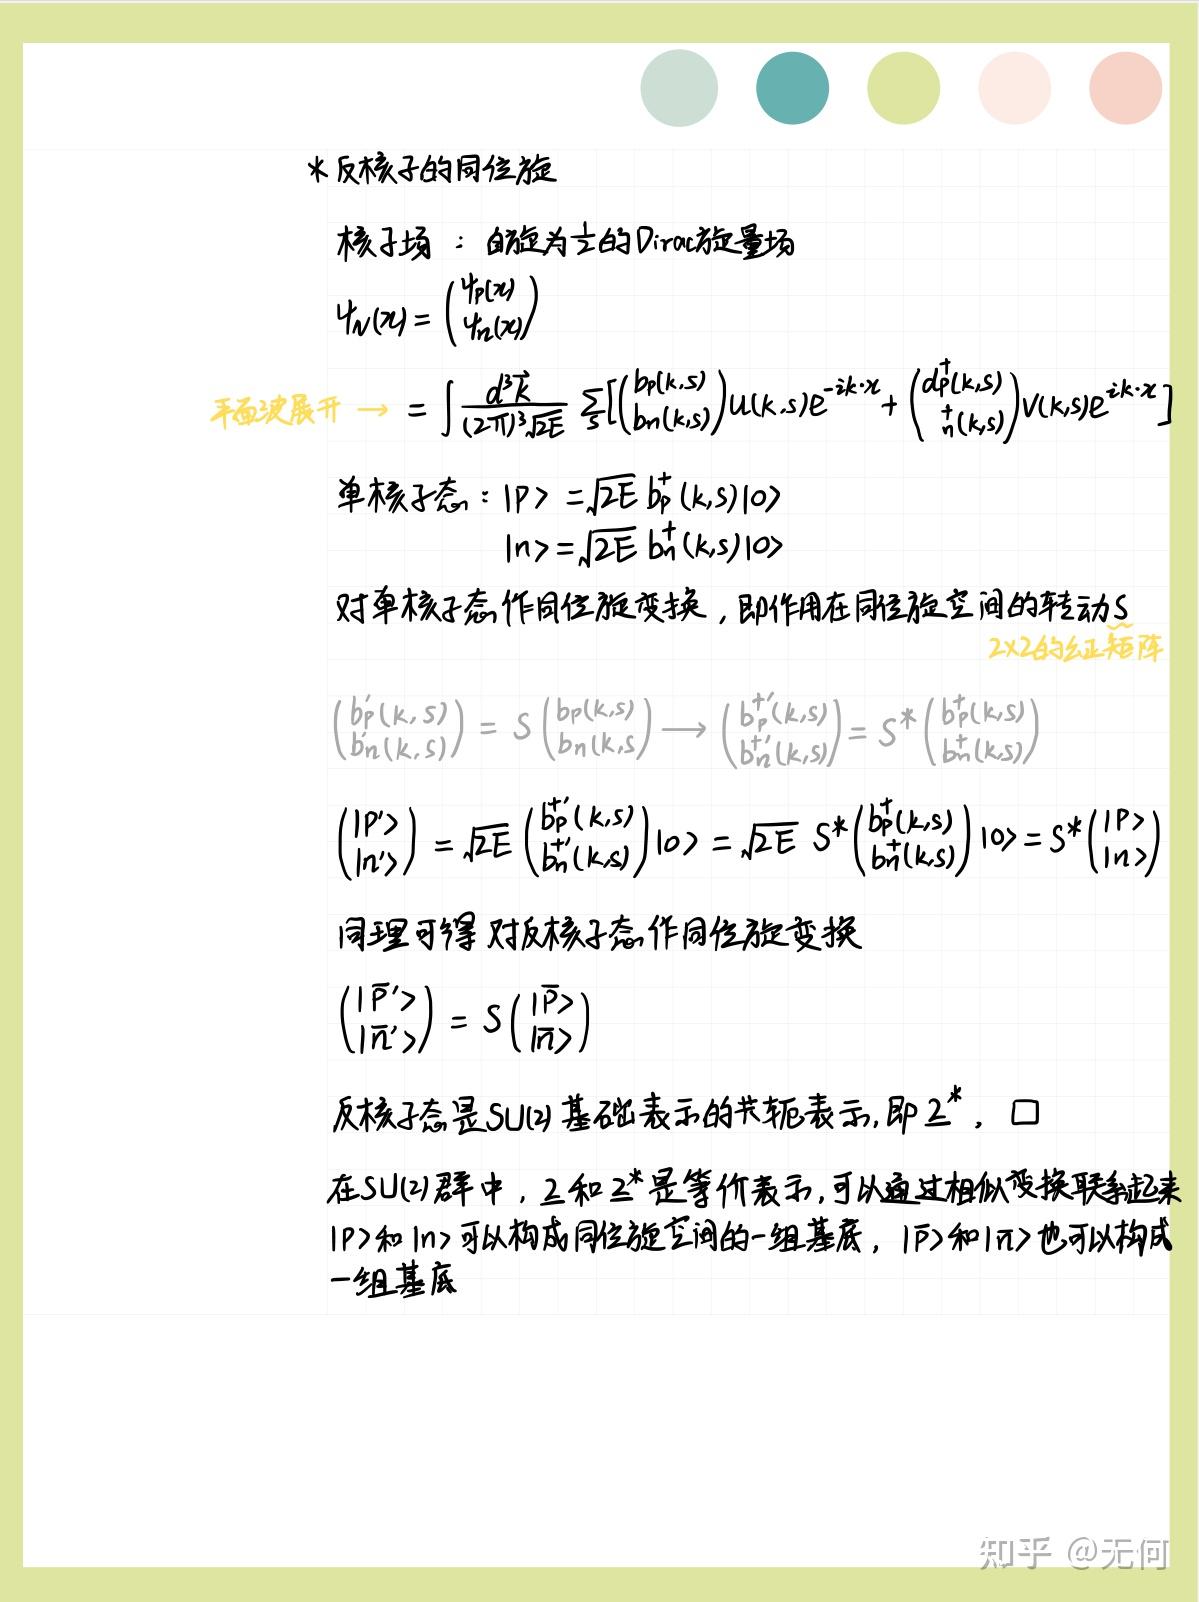 *反核子的同位旋
核子场：自旋为½的Dirac旋量场
ψN(x) = (ψp(x) ψn(x))
平面波展开 → = ∫ d³k⃗ / (2π)³√2E Σs [(bp(k,s) bn(k,s)) u(k.s)e^{-ik·x} + (d†p(k,s) †n(k,s)) v(k,s)e^{ik·x}]
单核子态：|p> = √2E b†p(k,s)|0>
|n> = √2E b†n(k,s)|0>
对单核子态作同位旋变换，即作用在同位旋空间的转动S
2×2的幺正矩阵
(b'p(k,s) b'n(k,s)) = S (bp(k,s) bn(k,s) → (b†'p(k,s) b†'n(k,s)) = S* (b†p(k,s) b†n(k,s))
(|p'> |n'>) = √2E (b†'p(k,s) b†'n(k,s)) |0> = √2E S* (b†p(k,s) b†n(k,s)) |0> = S* (|p> |n>)
同理可得 对反核子态作同位旋变换
(|p̄'> |n̄'>) = S (|p̄> |n̄>)
反核子态是SU(2)基础表示的共轭表示,即2*. □
在SU(2)群中，2和2*是等价表示,可以通过相似变换联系起来
|p>和|n>可以构成同位旋空间的一组基底，|p̄>和|n̄>也可以构成
一组基底
知乎 @无何